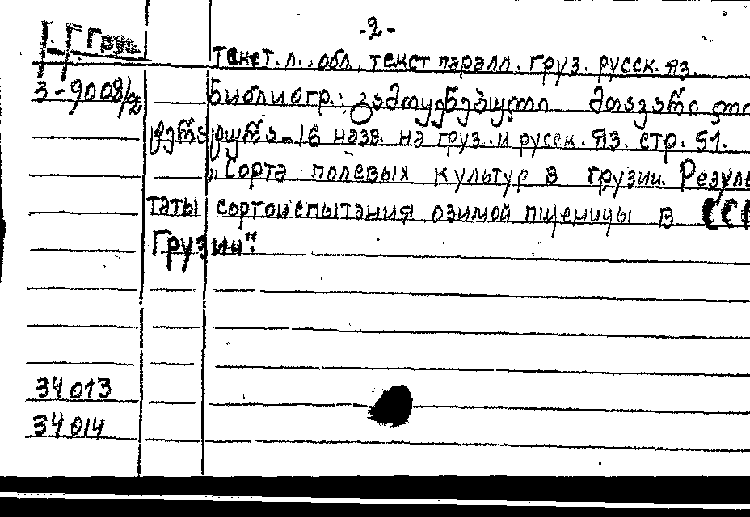 -2-
Груз.
Текст. л., обл, текст паралл. груз. русск. яз.
3-9008/2
Библиогр.: გამოყენებული
16 назв. на груз. и русск. яз. стр. 51.
"Сорта полевых культур в грузии. Резуль
таты сортоиспытания озимой пшеницы в ССР
Грузии".
34013
34014